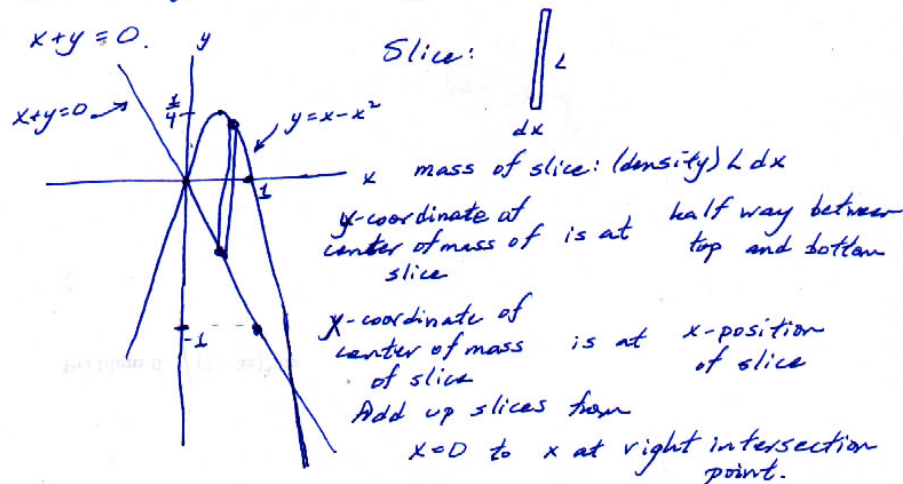 x+y=0.
x+y=0
y
1/4
y=x-x²
x
1
-1
Slice:
L
dx
mass of slice: (density) L dx
y-coordinate of
center of mass of
slice
is at
half way between
top and bottom
X-coordinate of
center of mass
of slice
is at
x-position
of slice
Add up slices from
x=0 to x at right intersection
point.